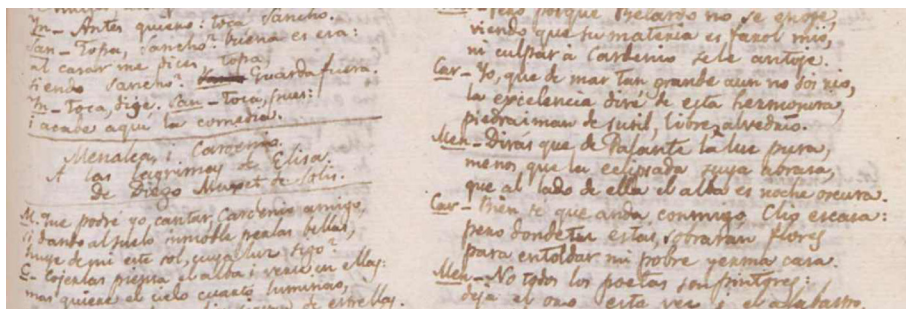 In_ Antes quiero: toca Sancho.
San_ Topa, Sancho? buena es esa:
al casar me dices topa,
siendo Sancho? Guarda fuera.
In_ Toca, digo. San_ Toca, pues:
i acabe aquí la comedia.
Menalca, i Cardenio.
A las lagrimas de Elisa.
de Diego Muxet de Solis.
M. Que podre yo cantar Cardenio amigo,
si dando al suelo inmoble perlas bellas,
huye de mi este sol, cuya luz sigo?
C_ Cojerlas piensa el alba i verse en ellas:
mas quiere el cielo cuarto luminoso,
de estrellas.
porque Belardo no se enoje,
viendo que su materia es farol mio,
ni culpar à Cardenio se le antoje.
Car_ Yo, que de mar tan grande aun no soi rio,
la excelencia diré de esta hermosura,
piedraiman de sutil, libre alvedrio.
Men_ Dirás que de Palante la luz pura,
menos que la eclipsada suya abrasa,
que al lado de ella el alba es noche oscura.
Car_ Bien sé que anda conmigo Clio escasa:
pero donde tu estas, sobraran flores
para entoldar mi pobre yerma casa.
Men_ No todos los poetas son pintores:
deja el oro esta vez i el alabastro,